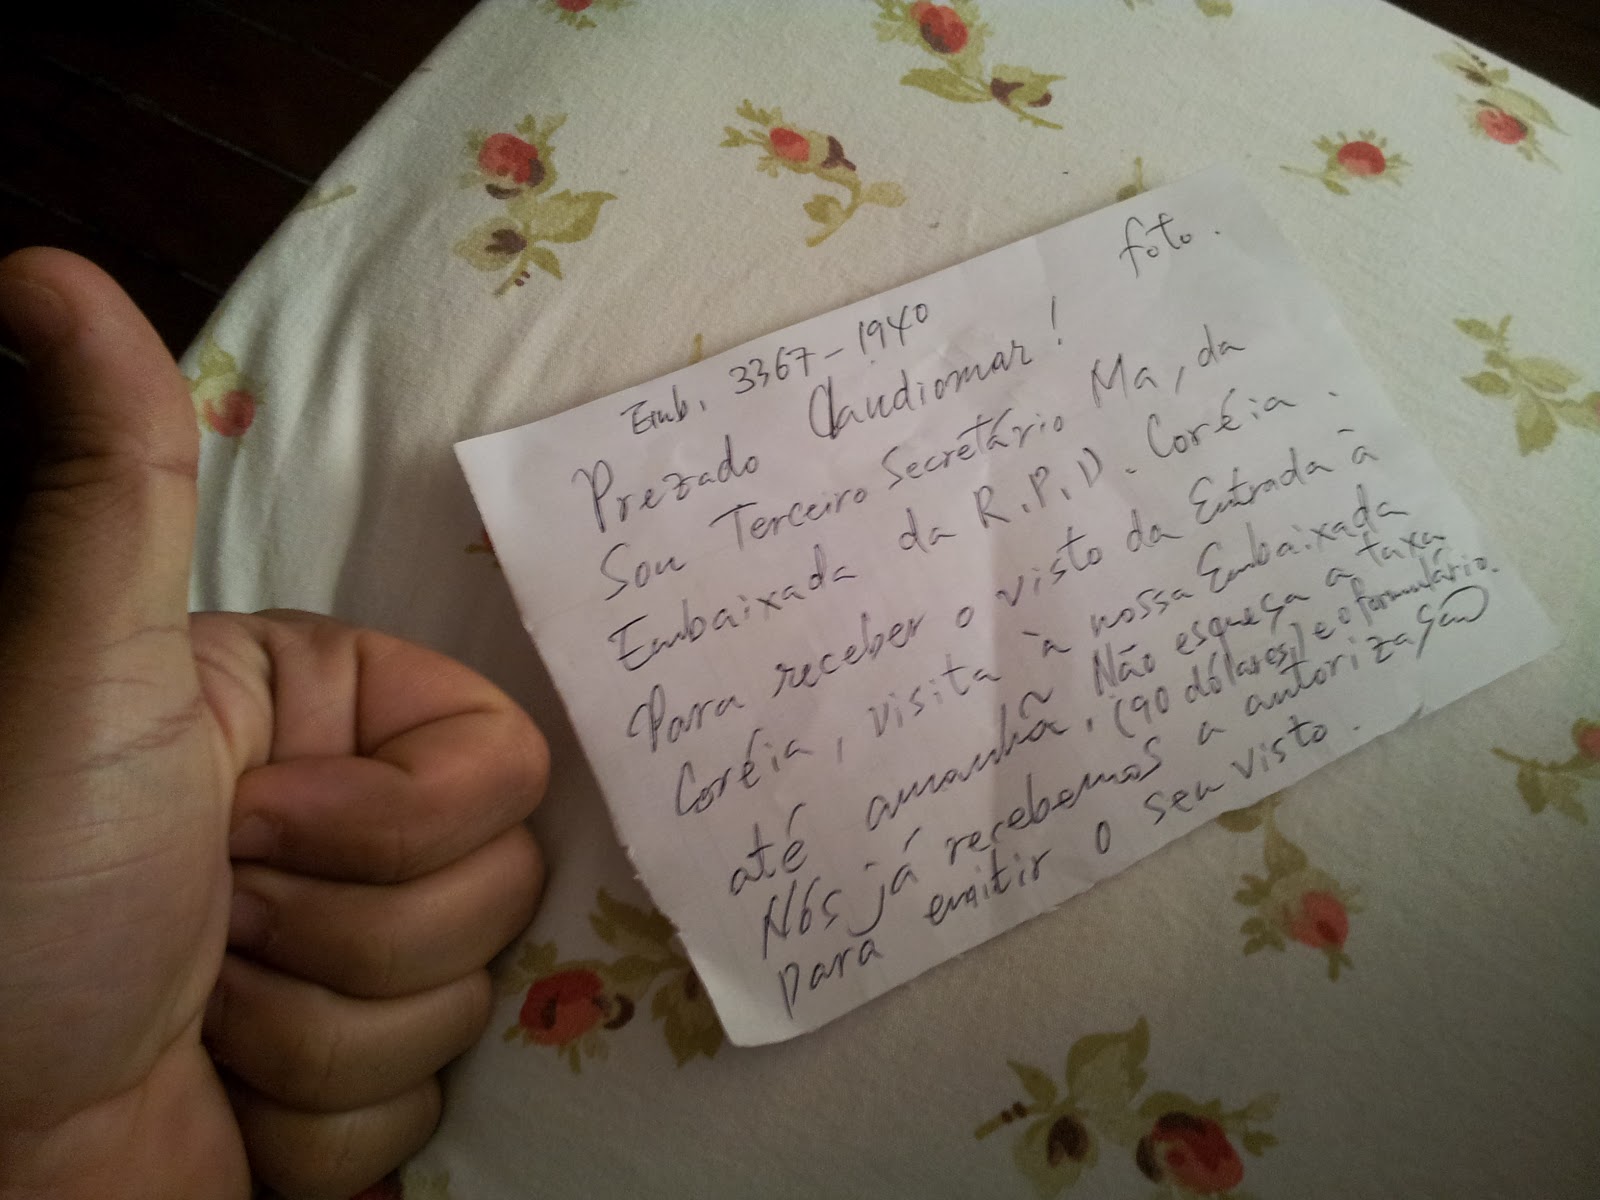 foto.
Emb. 3367-1940
Prezado Claudiomar!
Sou Terceiro Secretário Ma, da
Embaixada da R.P.D. Coréia.
Para receber o visto da Entrada à
Coréia, visita à nossa Embaixada
até amanhã. Não esqueça a taxa
(90 dólares) e o formulário.
Nós já recebemos a autorização
para emitir o seu visto.